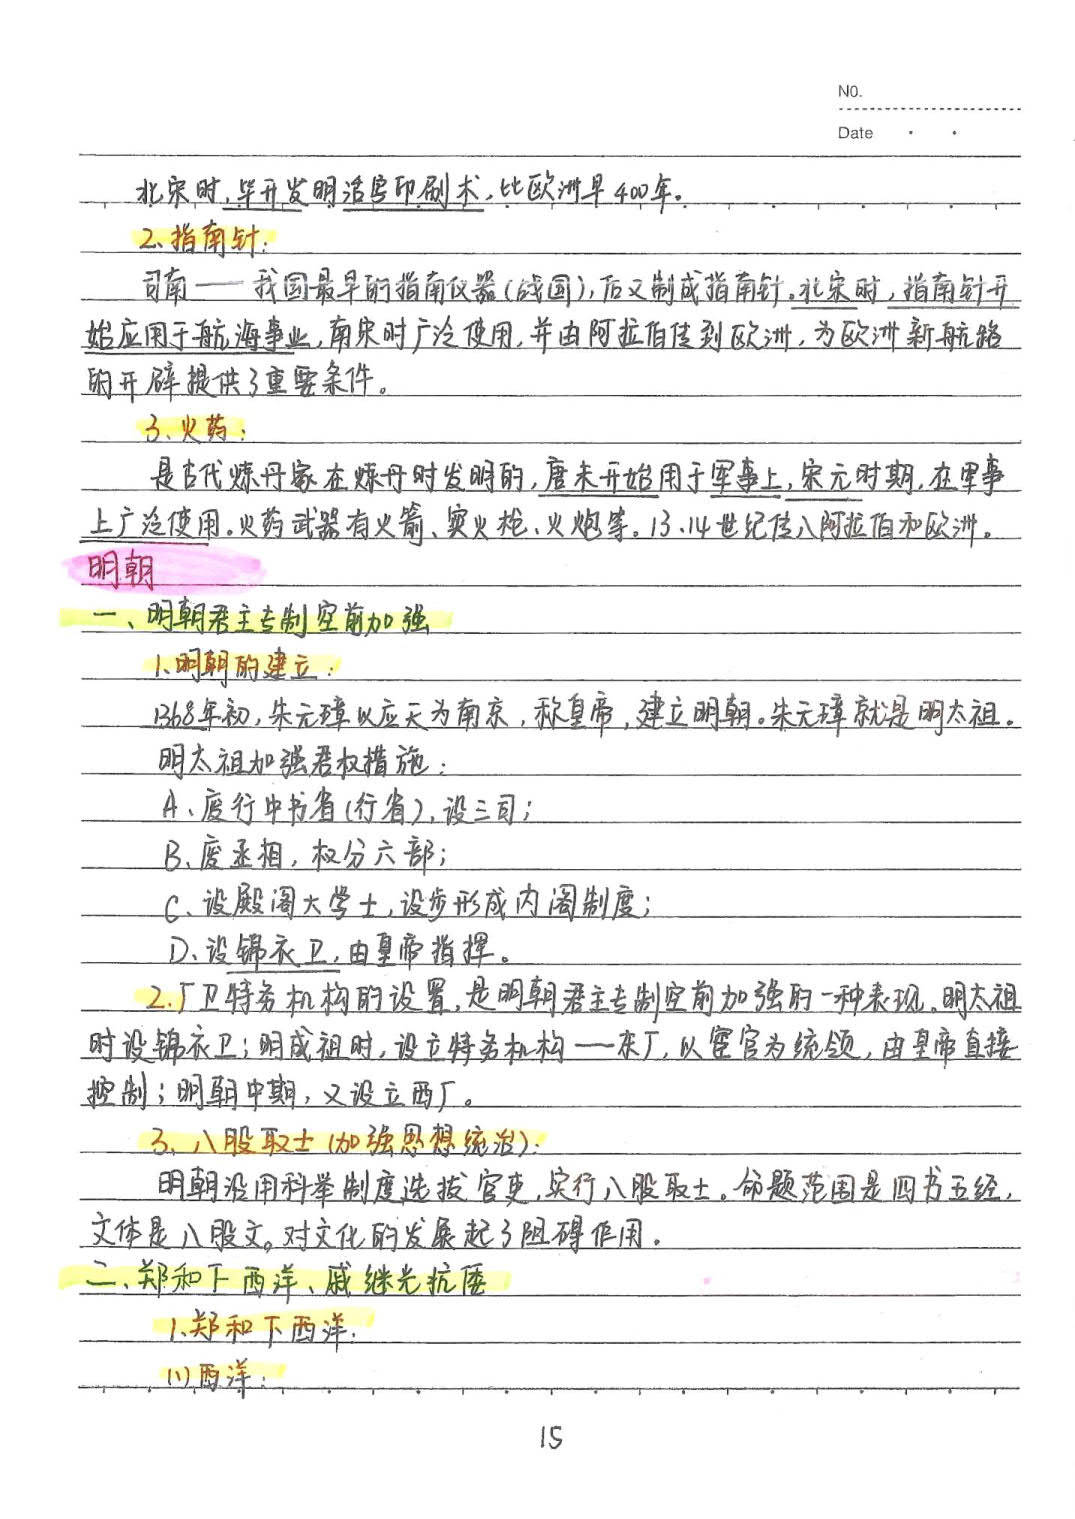 NO.
Date
北宋时,毕升发明活字印刷术,比欧洲早400年。
2、指南针:
司南——我国最早的指南仪器(战国),后又制成指南针。北宋时,指南针开
始应用于航海事业,南宋时广泛使用,并由阿拉伯传到欧洲,为欧洲新航路
的开辟提供了重要条件。
3、火药:
是古代炼丹家在炼丹时发明的,唐末开始用于军事上,宋元时期,在军事
上广泛使用。火药武器有火箭、突火枪、火炮等。13、14世纪传入阿拉伯和欧洲。
明朝
一、明朝君主专制空前加强
1、明朝的建立:
1368年初,朱元璋以应天为南京,称皇帝,建立明朝。朱元璋就是明太祖。
明太祖加强君权措施:
A、废行中书省(行省),设三司;
B、废丞相,权分六部;
C、设殿阁大学士,设步形成内阁制度;
D、设锦衣卫,由皇帝指挥。
2、厂卫特务机构的设置,是明朝君主专制空前加强的一种表现。明太祖
时设锦衣卫;明成祖时,设立特务机构——东厂,以宦官为统领,由皇帝直接
控制;明朝中期,又设立西厂。
3、八股取士(加强思想统治):
明朝沿用科举制度选拔官吏,实行八股取士。命题范围是四书五经,
文体是八股文。对文化的发展起了阻碍作用。
二、郑和下西洋、戚继光抗倭
1、郑和下西洋:
(1)西洋:
15